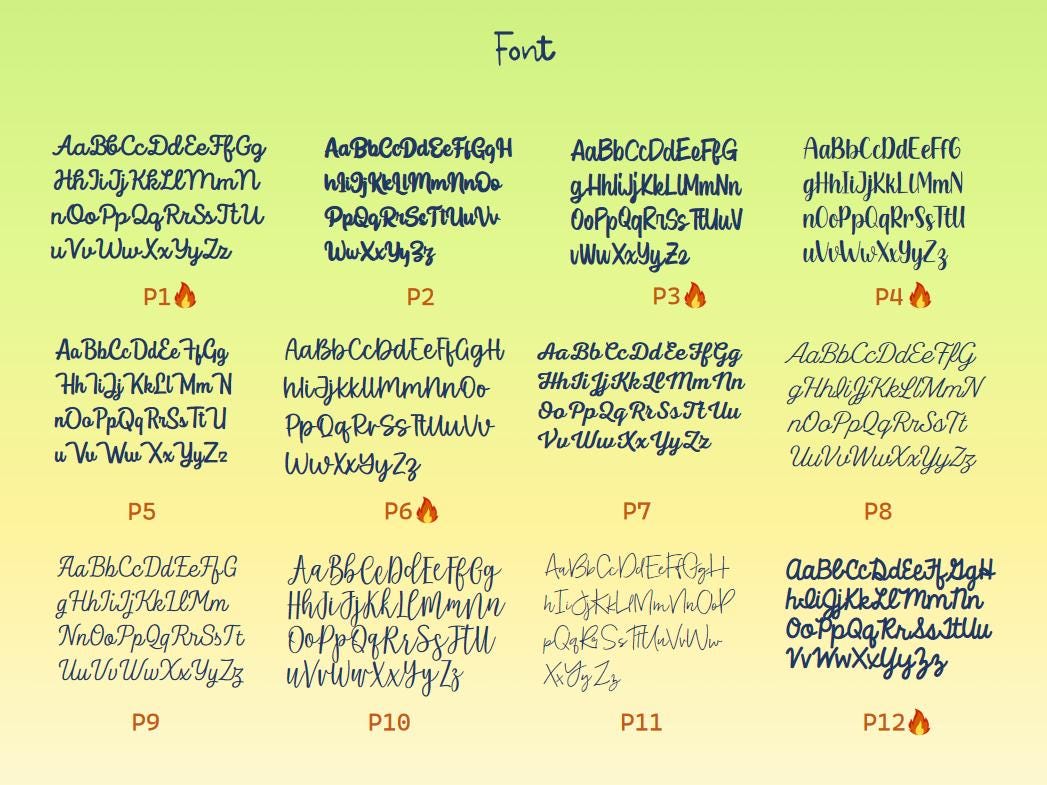 Font
AaBbCcDdEeFfGg
HhIiJjKkLlMmN
nOoPpQqRrSsTtU
uVvWwXxYyZz
P1🔥
AaBbCcDdEeFfGgH
hIiJjKkLlMmNnOo
PpQqRrSsTtUuVv
WwXxYyZz
P2
AaBbCcDdEeFfG
gHhIiJjKkLlMmNn
OoPpQqRrSsTtUuV
vWwXxYyZz
P3🔥
AaBbCcDdEeFfG
gHhIiJjKkLlMmN
nOoPpQqRrSsTtU
uVvWwXxYyZz
P4🔥
AaBbCcDdEeFfGg
HhIiJjKkLlMmN
nOoPpQqRrSsTtU
uVvWwXxYyZz
P5
AaBbCcDdEeFfGgH
hIiJjKkLlMmNnOo
PpQqRrSsTtUuVv
WwXxYyZz
P6🔥
AaBbCcDdEeFfGg
HhIiJjKkLlMmNn
OoPpQqRrSsTtUu
VvWwXxYyZz
P7
AaBbCcDdEeFfG
gHhIiJjKkLlMmN
nOoPpQqRrSsTt
UuVvWwXxYyZz
P8
AaBbCcDdEeFfG
gHhIiJjKkLlMm
NnOoPpQqRrSsTt
UuVvWwXxYyZz
P9
AaBbCcDdEeFfGg
HhIiJjKkLlMmNn
OoPpQqRrSsTtU
uVvWwXxYyZz
P10
AaBbCcDdEeFfGgH
hIiJjKkLlMmNnOoP
pQqRrSsTtUuVvWw
XxYyZz
P11
AaBbCcDdEeFfGgH
hIiJjKkLlMmNn
OoPpQqRrSsTtUu
VvWwXxYyZz
P12🔥